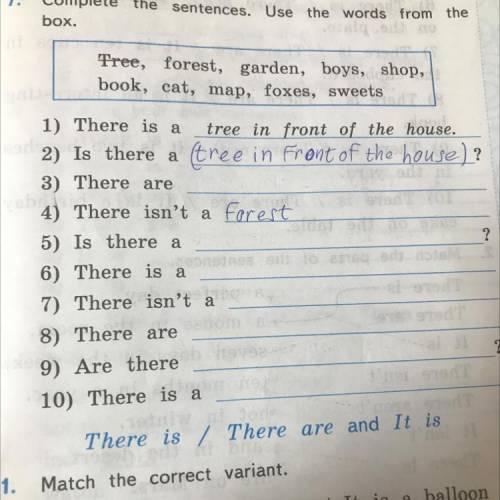 Complete the sentences. Use the words from the
box.
Tree, forest, garden, boys, shop,
book, cat, map, foxes, sweets
1) There is a tree in front of the house.
2) Is there a (tree in Front of the house) ?
3) There are
4) There isn't a forest
5) Is there a ?
6) There is a
7) There isn't a
8) There are
9) Are there ?
10) There is a
There is / There are and It is
1. Match the correct variant.
It is a balloon